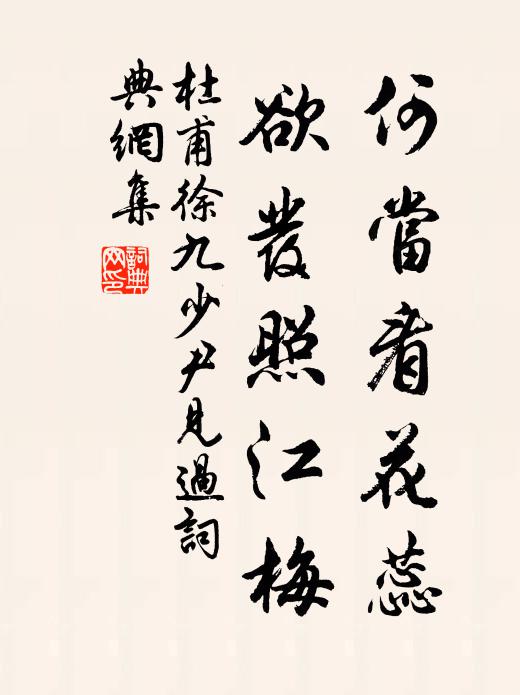 何當看花蕊
欲發照江梅
杜甫徐九少尹見過詞
典網集
詞典
网印